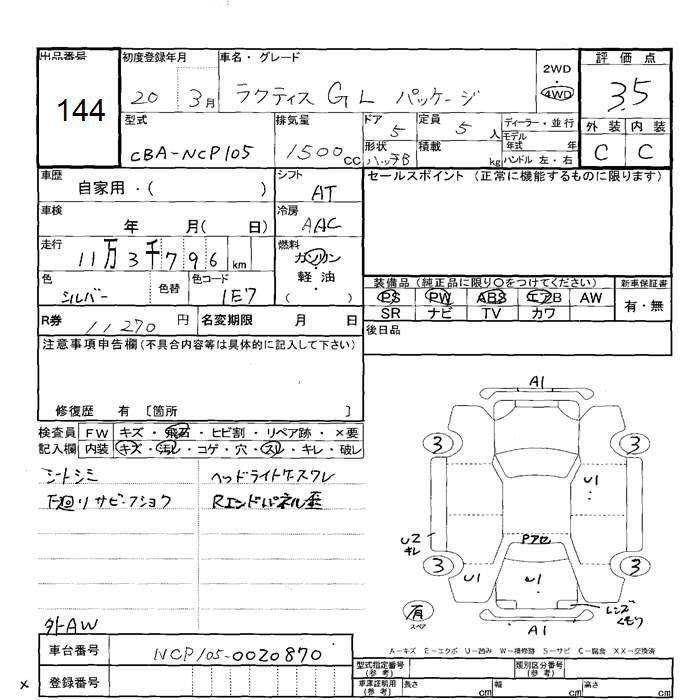 出品番号
144
初度登録年月
20 3月
車名・グレード
ラクティス G L パッケージ
2WD
・
4WD
評価点
3.5
外装 内装
C C
型式
CBA-NCP105
排気量
1500cc
ドア
5
定員
5人
ディーラー・並行
形状
ハッチB
積載
kg
モデル年式 年
ハンドル 左・右
車歴
自家用・( )
シフト
AT
セールスポイント(正常に機能するものに限ります)
車検
年 月( 日)
冷房
AAC
走行
11万3千796km
燃料
ガソリン
軽・油
( )
色
シルバー
色替
色コード
1E7
装備品(純正品に限り○をつけてください)
PS PW ABS エアB AW
SR ナビ TV カワ
新車保証書
有・無
R券
11270円
名変期限 月 日
後日品
注意事項申告欄(不具合内容等は具体的に記入して下さい)
修復歴 有 〔箇所 〕
検査員記入欄
FW キズ・飛石・ヒビ割・リペア跡・×要
内装 キズ・汚レ・コゲ・穴・スレ・キレ・破レ
シートシミ
下廻りサビ・フショク
ヘッドライトケースワレ
Rエンドパネル歪
外AW
A1
3
3
U1
U2
キレ
Pアセ
3
3
U1
U1
有
スペア
A1
レンズ
くもり
A-キズ E-エクボ U-凹み W-補修跡 S-サビ C-腐食 XX-交換済
車台番号
NCP105-0020870
×
登録番号
型式指定番号
(参考)
類別区分番号
(参考)
車庫証明用
(参考)
長さ cm 幅 cm 高さ cm